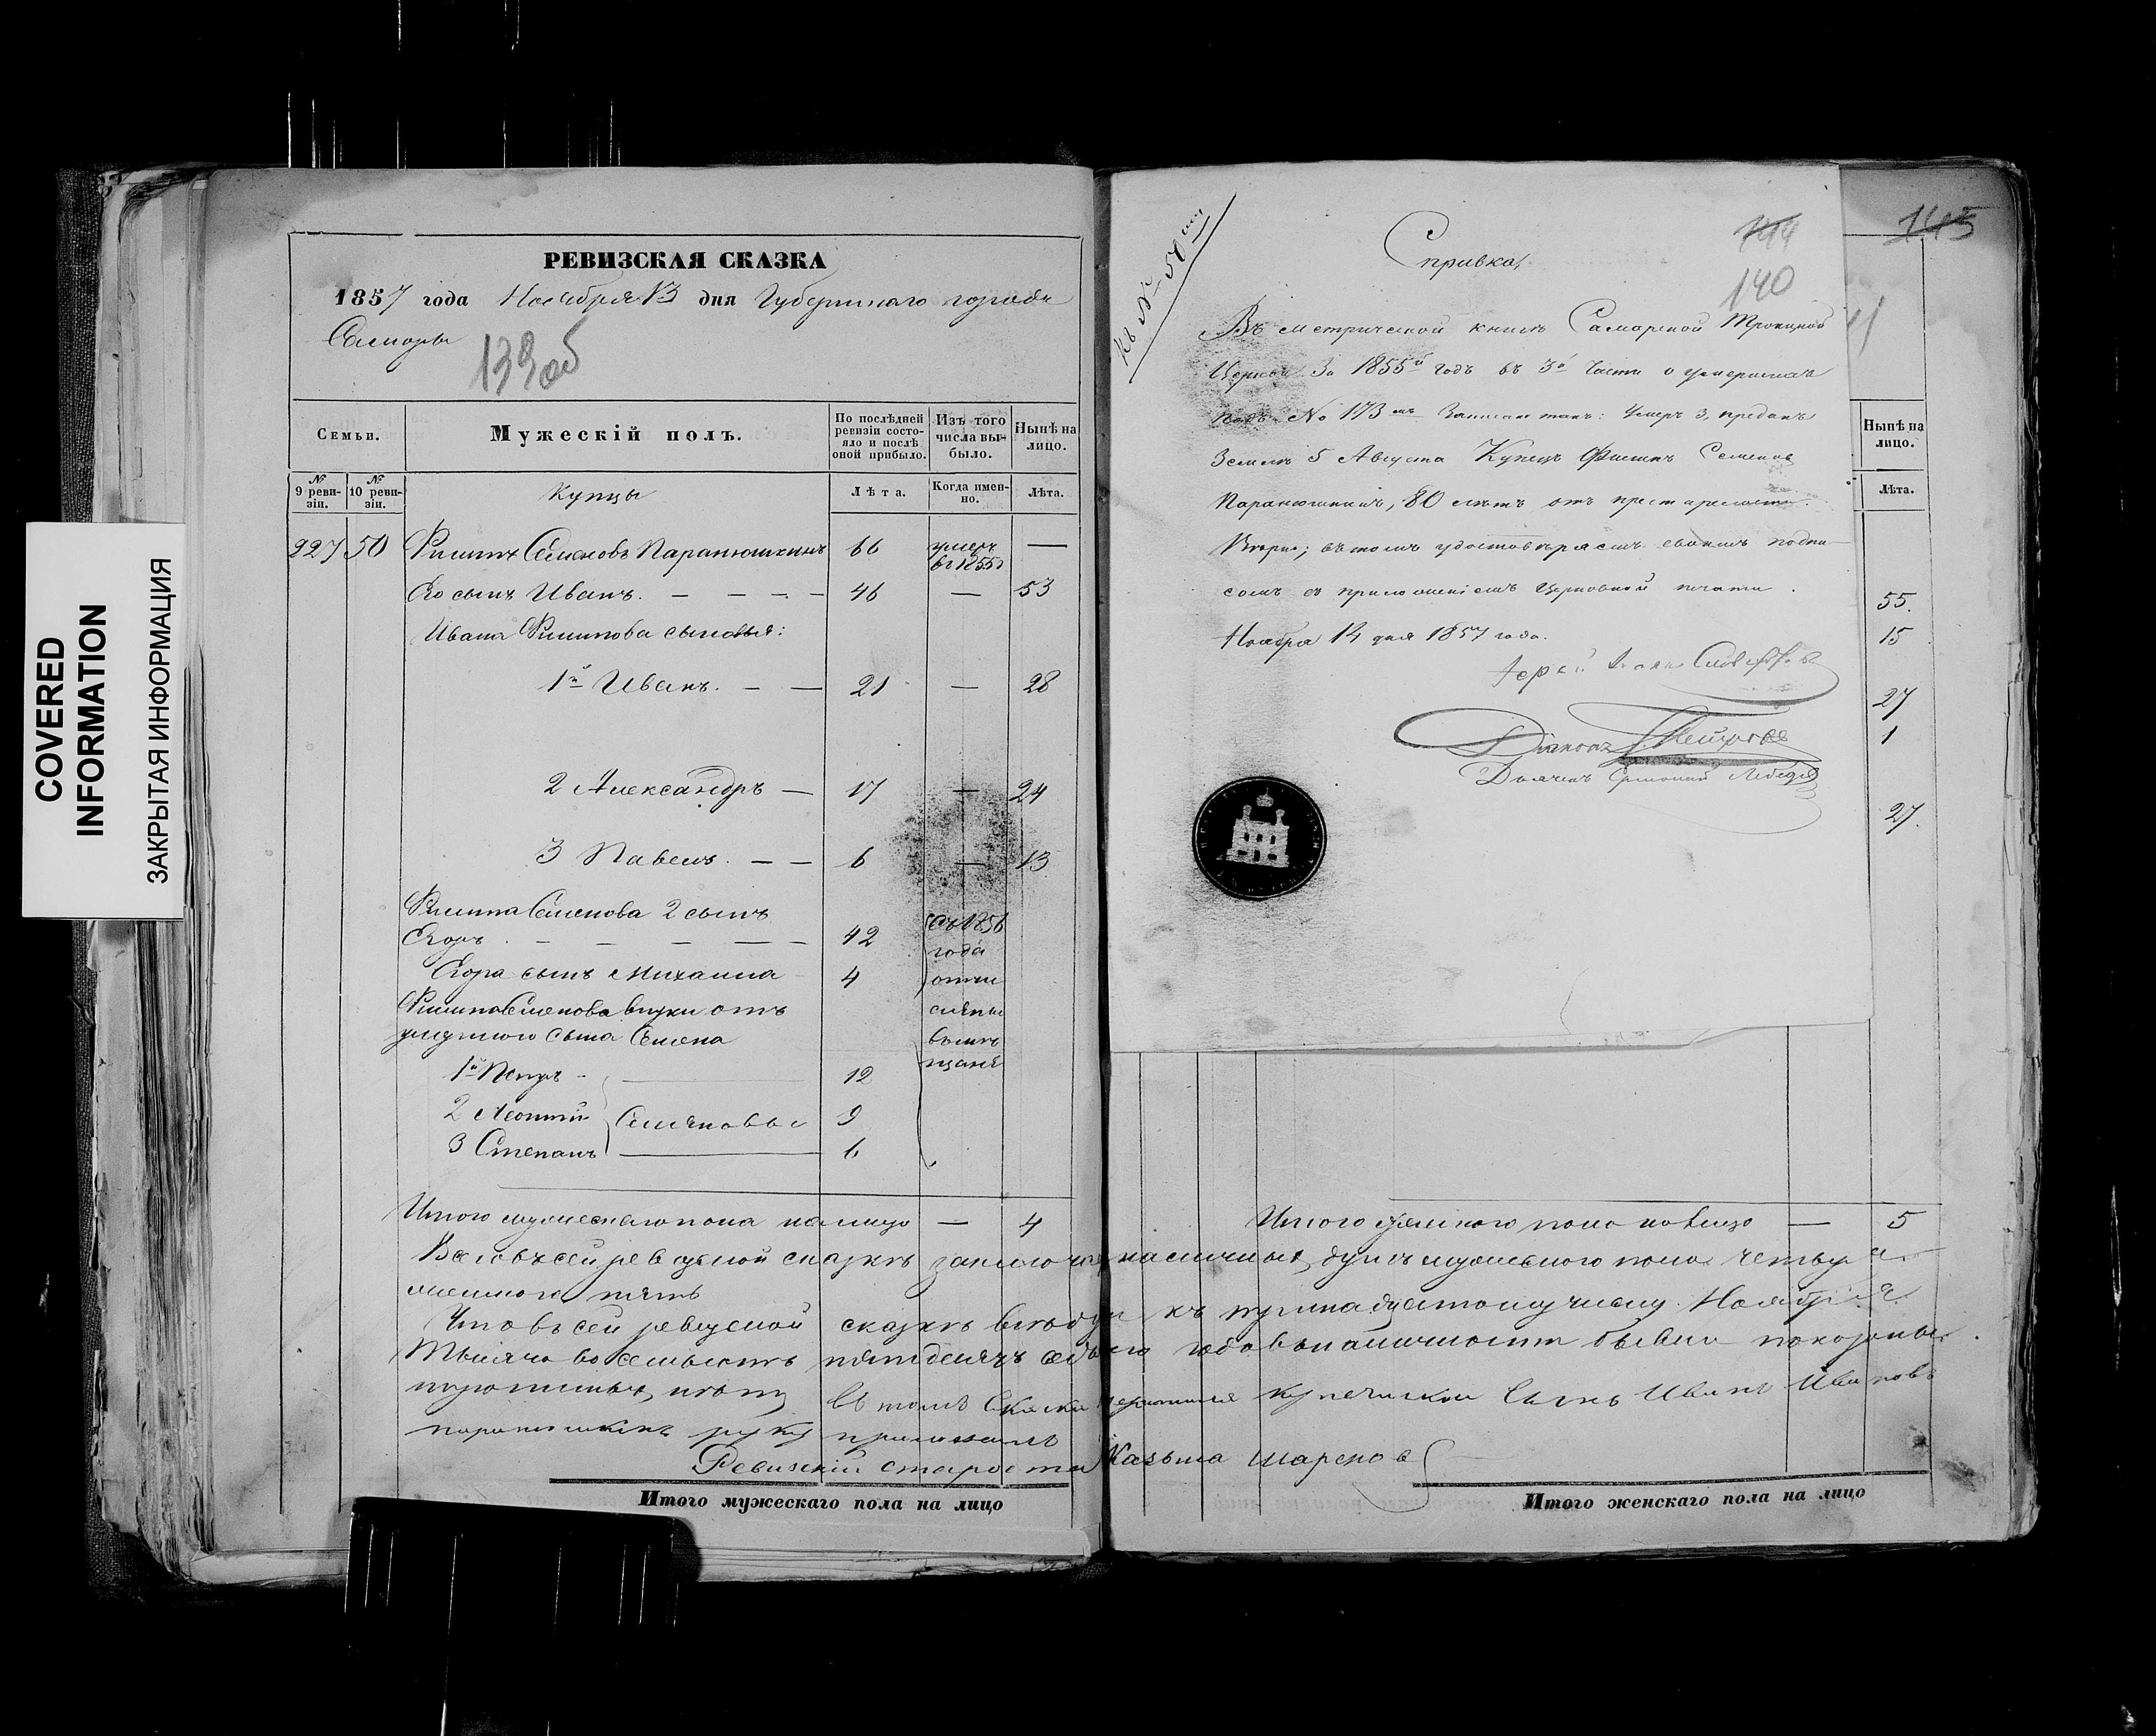 COVERED
INFORMATION
ЗАКРЫТАЯ ИНФОРМАЦИЯ
РЕВИЗСКАЯ СКАЗКА
1857 года Ноября 13 дня Губернскаго города
Самары
139 об
Семьи.
Мужескій полъ.
По послѣдней ревизіи состояло и послѣ оной прибыло.
Изъ того числа выбыло.
Нынѣ на лицо.
№ 9 ревизіи.
№ 10 ревизіи.
Купцы
Лѣта.
Когда именно.
Лѣта.
227 50 Филипъ Семеновъ Паранюшкинъ 66 умеръ въ 1855 —
Его сынъ Иванъ. — — — — 46 — 53
Ивана Филипова сыновья:
1й Иванъ. — — 21 — 28
2 Александръ — 17 — 24
3 Павелъ. — — 6 — 13
Филипа Семенова 2 сынъ
Егоръ — — — — — 42
Егора сынъ Михаила 4
Филипа Семенова внуки отъ
умершого сына Семена
1й Петръ 12
2 Леонтій 9
3 Степанъ 6
Семеновы
съ 1856
года
отчи
слены
въ мѣ
щане
Итого мужескаго пола на лицо — 4
Итого женского пола на лицо — 5
Всего въ сей ревизкой сказкѣ наличныхъ душъ мужеского пола четыре
женского пять
Что въ сей ревизской сказкѣ къ тринадцатому числу Ноября
Тысяча восемьсотъ пятдесятъ года въ наличности
въ томъ купеческой сынъ Иванъ Ивановъ
руку приложилъ
Ревизскій староста Казьма Шареновъ
Итого мужескаго пола на лицо
Итого женскаго пола на лицо
Къ № 50 му
Справка,
144
140
145
Въ метрической книгѣ Самарской Троицкой
Церкви за 1855й годъ въ 3й части о умершихъ
подъ № 173 мъ записано такъ: Умеръ 3, преданъ
земли 5 Августа Купецъ Филипъ Семеновъ
Паранюшкинъ, 80 лѣтъ отъ престарелости.
Вѣрно; въ томъ удостовѣряемъ своимъ подпи-
сомъ съ приложеніемъ Церковной печати.
Ноября 14 дня 1857 года.
Іерей
Діаконъ
Дьячекъ
Нынѣ на лицо.
Лѣта.
55.
15
27
1
27.